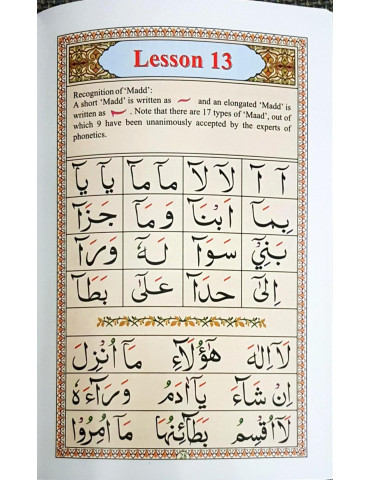 Lesson 13
Recognition of 'Madd':
A short 'Madd' is written as and an elongated 'Madd' is
written as . Note that there are 17 types of 'Maad', out
of which 9 have been unanimously accepted by the experts of
phonetics.
آ آ لَآ لَآ مَآ مَآ يَآ يَآ
بِمَآ اَبْنَآ وَمَآ جَزَآ
بَنِيْٓ سَوَآ لَهٗٓ وَرَآ
اِلٰٓى حَدَآ عَلٰٓى بَطَآ
لَآ اِلٰهَ هٰٓؤُلَآءِ مَآ اُنْزِلَ
اِنْ شَآءَ يَآ اٰدَمُ وَرَآءَهٗ
لَآ اُقْسِمُ بَطَآئِنُهَا مَآ اُمِرُوْا